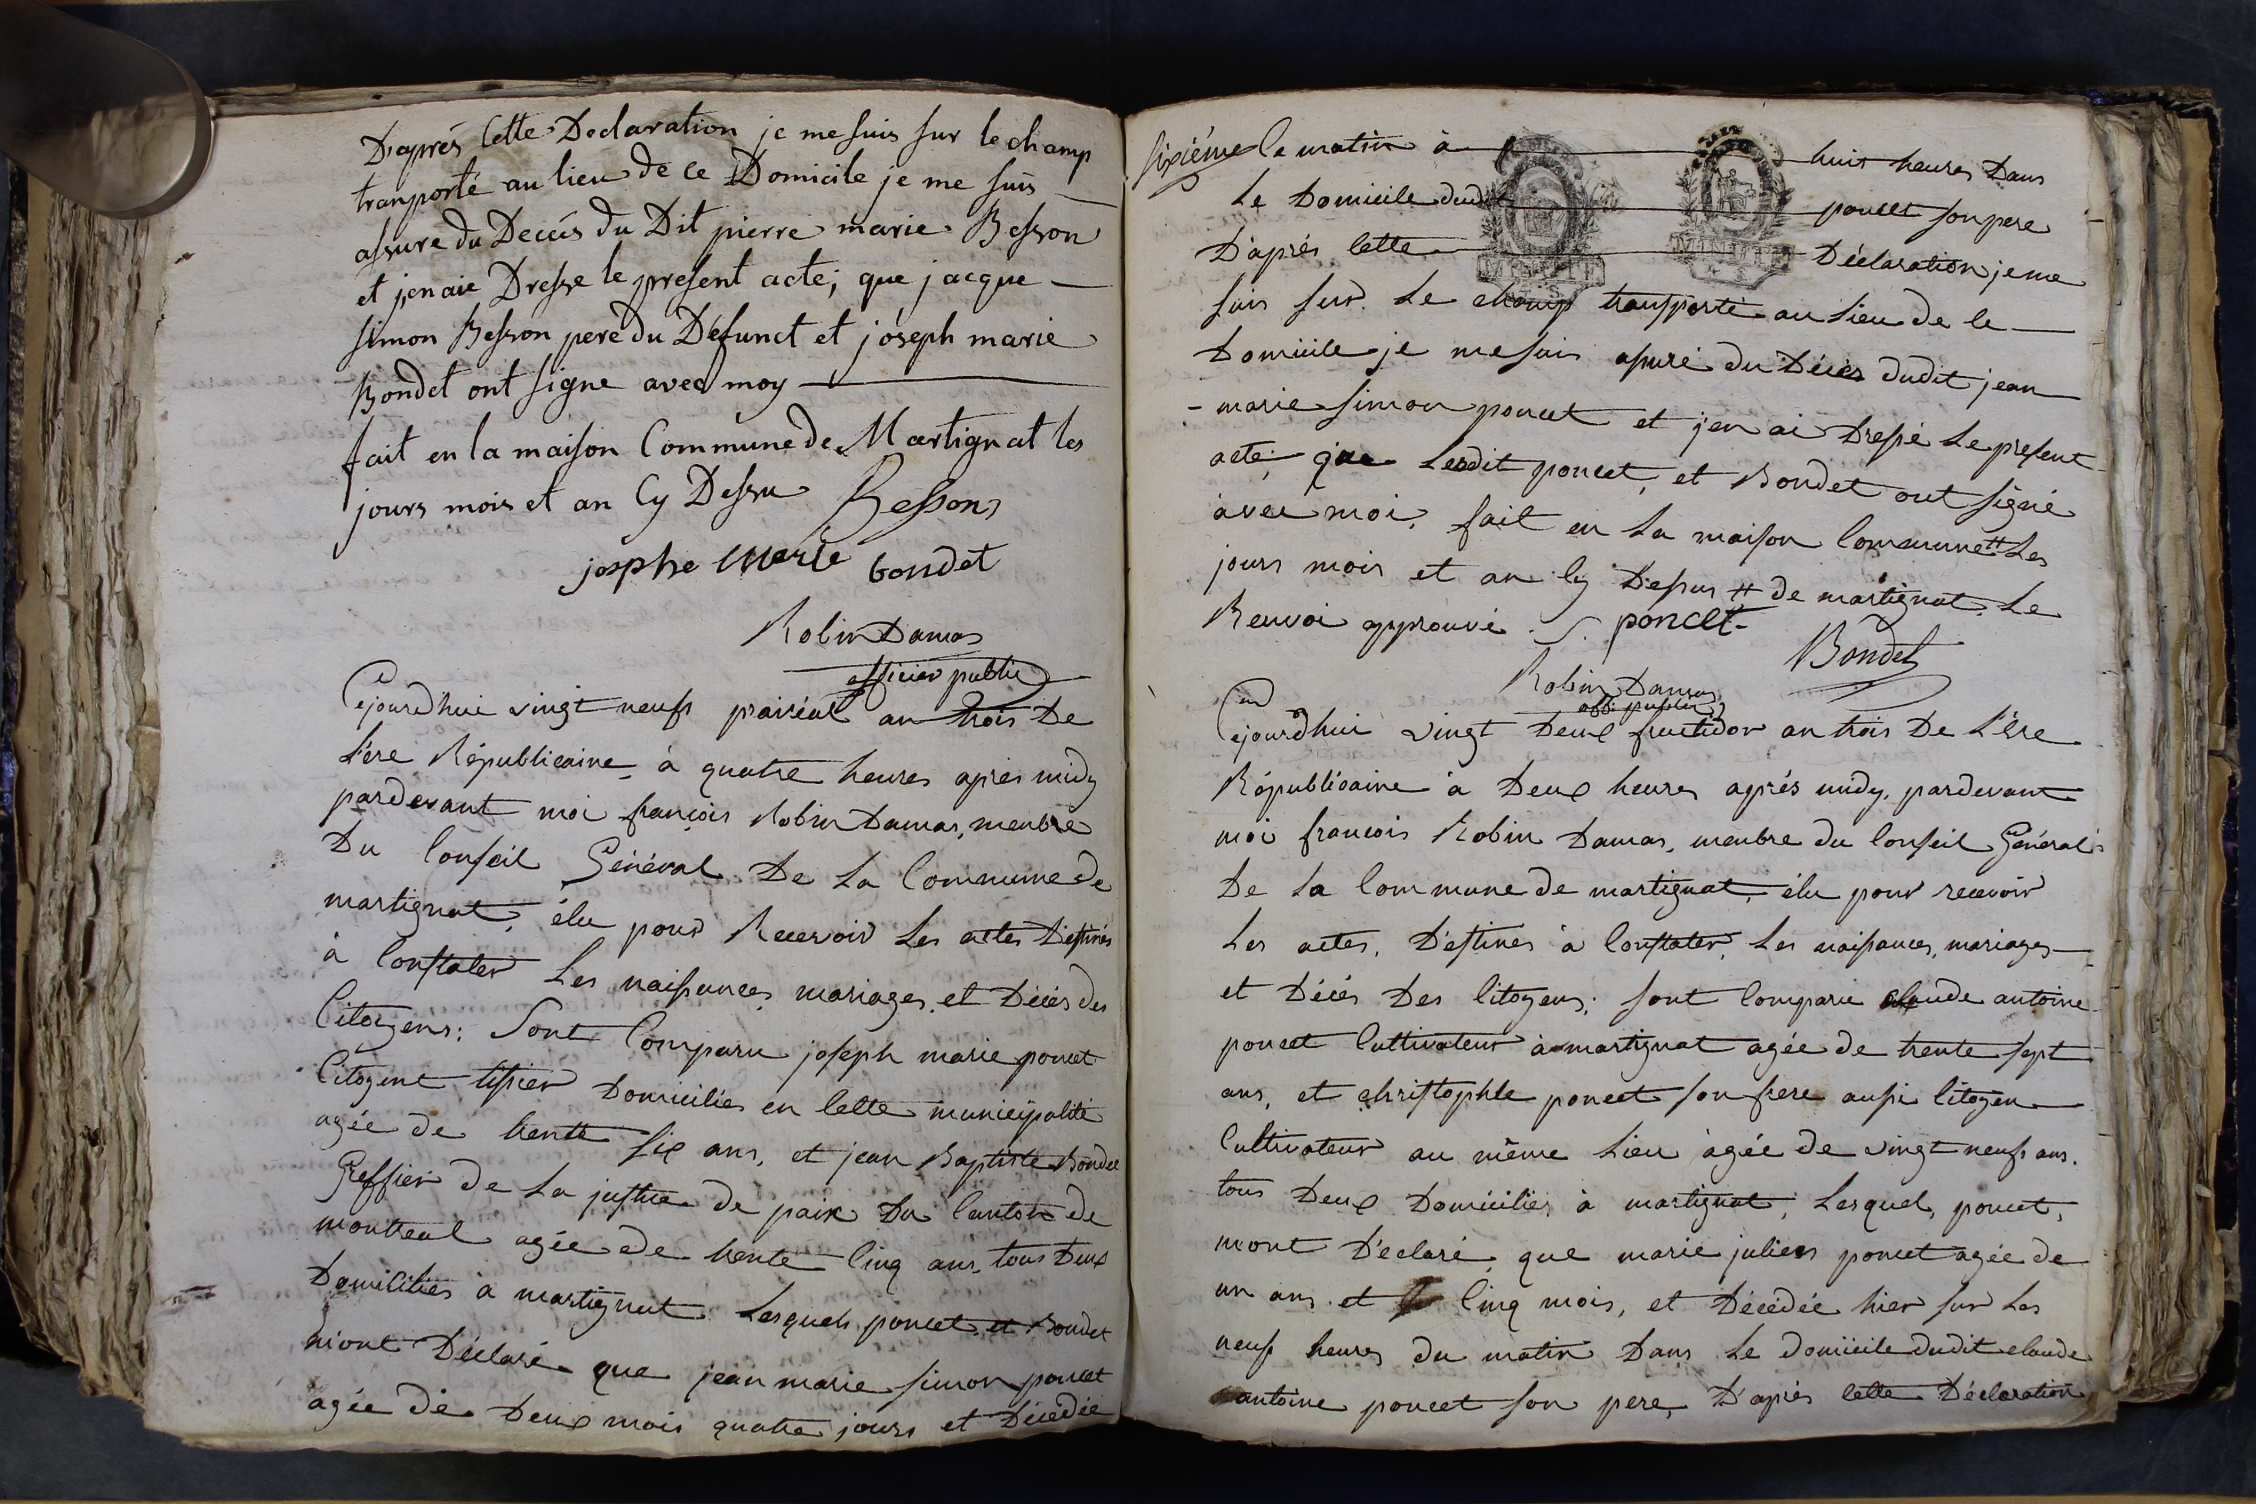 D'aprés Cette Declaration je me suis sur le champ
tranporté au lieu de ce Domicile je me suis
assure du Decés du Dit pierre marie Besson
et jen aie Dresse le present acte; que jacque
simon Besson pere du Defunct et joseph marie
Bondet ont signe avec moy
fait en la maison Commune de Martignat les
jours mois et an Cy Dessu Besson
josphe Marie bondet
Robin Damas
officier public
Cejourdhui vingt neuf prairéal an trois De
L'ére Républicaine, à quatre heures aprés midy
pardevant moi françois Robin Damas, menbre
Du Conseil Général De La Commune de
martignat, élu pour Recevoir Les actes Destinés
à Constater Les naissances, mariages, et Décés des
Citoyens: Sont Comparu joseph marie poncet
Citoyent tissier Domiciliés en Cette municipalité
agée de trente six ans, et jean Baptiste Bondet
Greffier de La justice de paix Du Canton de
montreal agée de trente Cinq ans, tous Deux
Domiciliés à martignat Lesquels poncet et Bondet
m'ont Déclaré que jean marie simon poncet
agée de Deux mois quatre jours et Décédée
Sixiéme
le matin à huit heures Dans
Le Domicile dudit poncet son pere
D'aprés Cette Déclaration je me
suis sur Le champ transporté au Lieu de Ce
Domicile je me suis assuré du Décés dudit jean
- marie simon poncet et j'en ai Dressé Le present
acte; que Lesdit poncet, et Bondet ont signé
avec moi, fait en La maison Commune # Les
jours mois et an Cy Dessus # de martignat. Le
Renvoi approuvé. S. poncet
Bondet
Robin Damas
off. public
Cejourdhui vingt Deux fructidor an trois De L'Ére
Républicaine à Deux heures aprés midy, pardevant
moi francois Robin Damas, menbre du Conseil Général
De La Commune de martignat, élu pour recevoir
Les actes, Destinés à Constater, Les naissances, mariages
et Décés Des Citoyens; sont Comparu claude antoine
poncet Cultivateur à martignat agée de trente sept
ans, et christophle poncet son frere aussi Citoyen
Cultivateur au même Lieu àgée de vingt neuf ans.
tous Deux Domiciliés à martignat, Lesquels, poncet,
mont Déclaré, que marie julien poncet agée de
un ans et Cinq mois, et Décédée hier sur Les
neuf heures du matin Dans Le domicile dudit claude
antoine poncet son pere, D'aprés Cette Déclaration